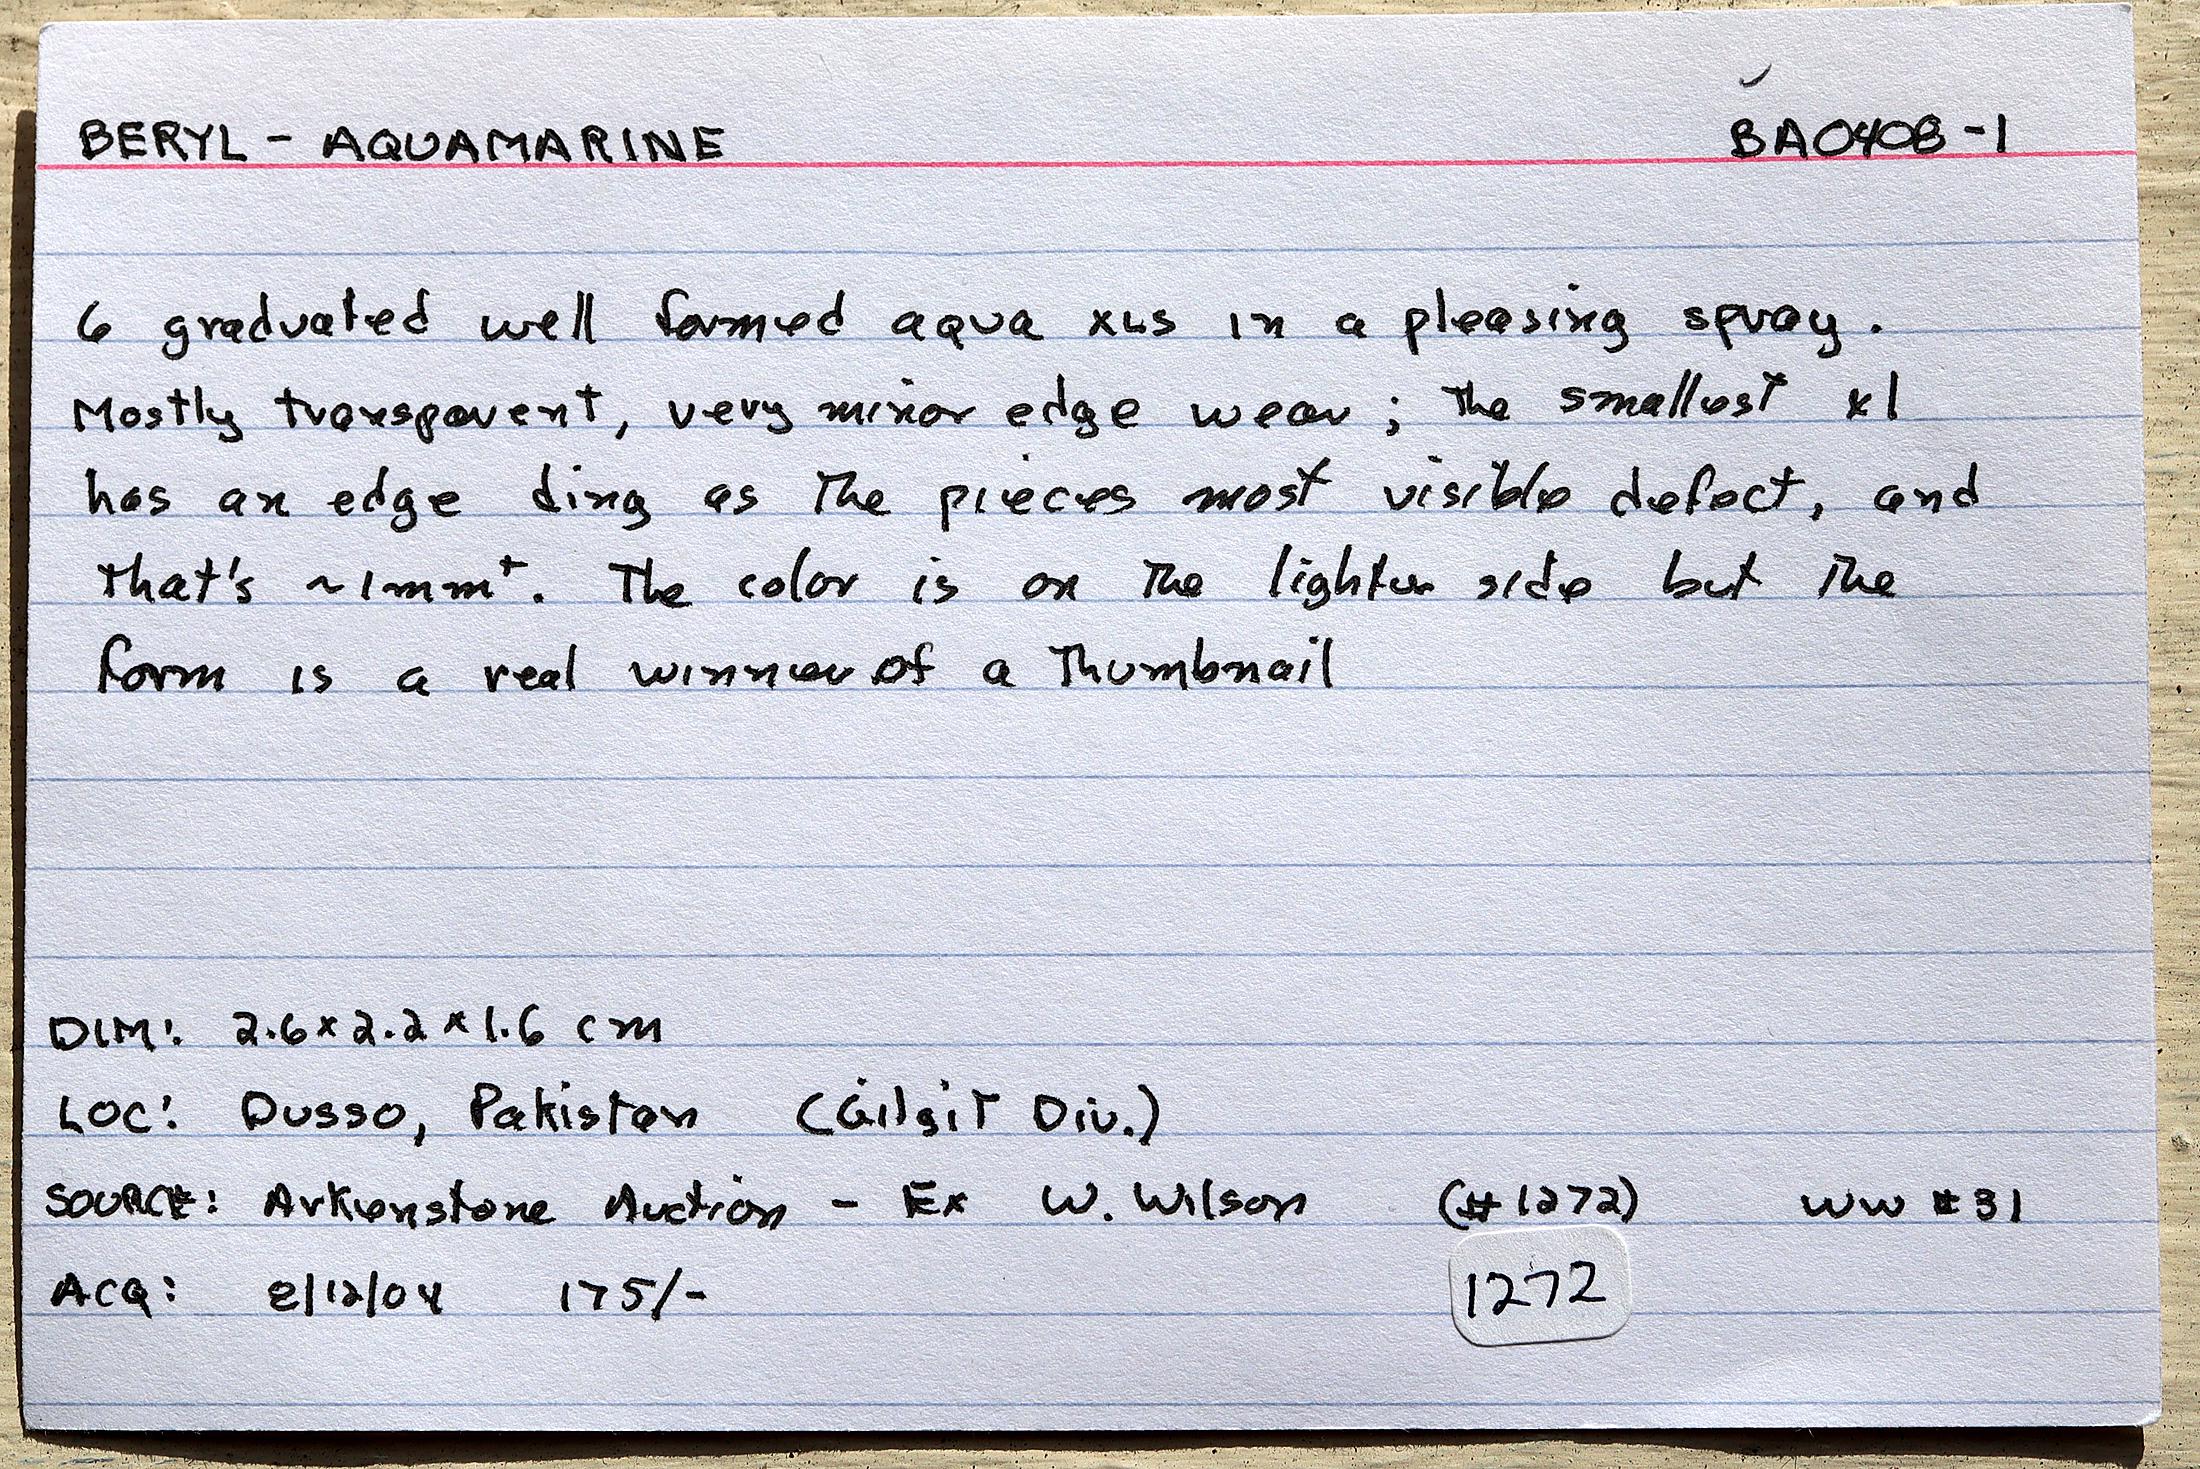 BERYL - AQUAMARINE BA0408-1
6 graduated well formed aqua xLs in a pleasing spray.
Mostly transparent, very minor edge wear; the smallest xl
has an edge ding as the pieces most visible defect, and
that's ~1mm⁺. The color is on the lighter side but the
form is a real winner of a Thumbnail
DIM: 2.6 x 2.2 x 1.6 cm
LOC: Dusso, Pakistan (Gilgit Div.)
SOURCE: Arkenstone Auction - Ex W. Wilson (#1272) WW #31
ACQ: 8/12/04 175/-
1272